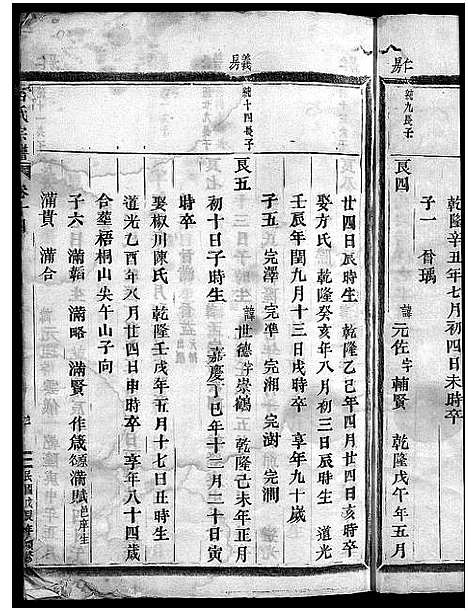 仁房
純九長子
乾隆辛丑年七月初四日未時卒
子一 喬瑀
良四 諱元佐字輔賢 乾隆戊午年五月
廿四日辰時生 乾隆乙巳年四月廿四日亥時卒
娶方氏 乾隆癸亥年八月初三日辰時生 道光
壬辰年閏九月十三日戌時卒 享年九十歲
子五 完澤 完準 完湘 完澍 完澗
義房
純十四長子
良五 諱世德字崇鶴 乾隆己未年正月
初十日子時生 嘉慶丁巳年十二月二十日寅
時卒
娶椒川陳氏 乾隆壬戌年五月十七日丑時生
道光乙酉年八月廿四日申時卒 享年八十四歲
合葬梧桐山尖午山子向
子六 滿韜 滿略 滿賢 滿賦邑庠生
滿貴 滿合
氏宗譜
民國